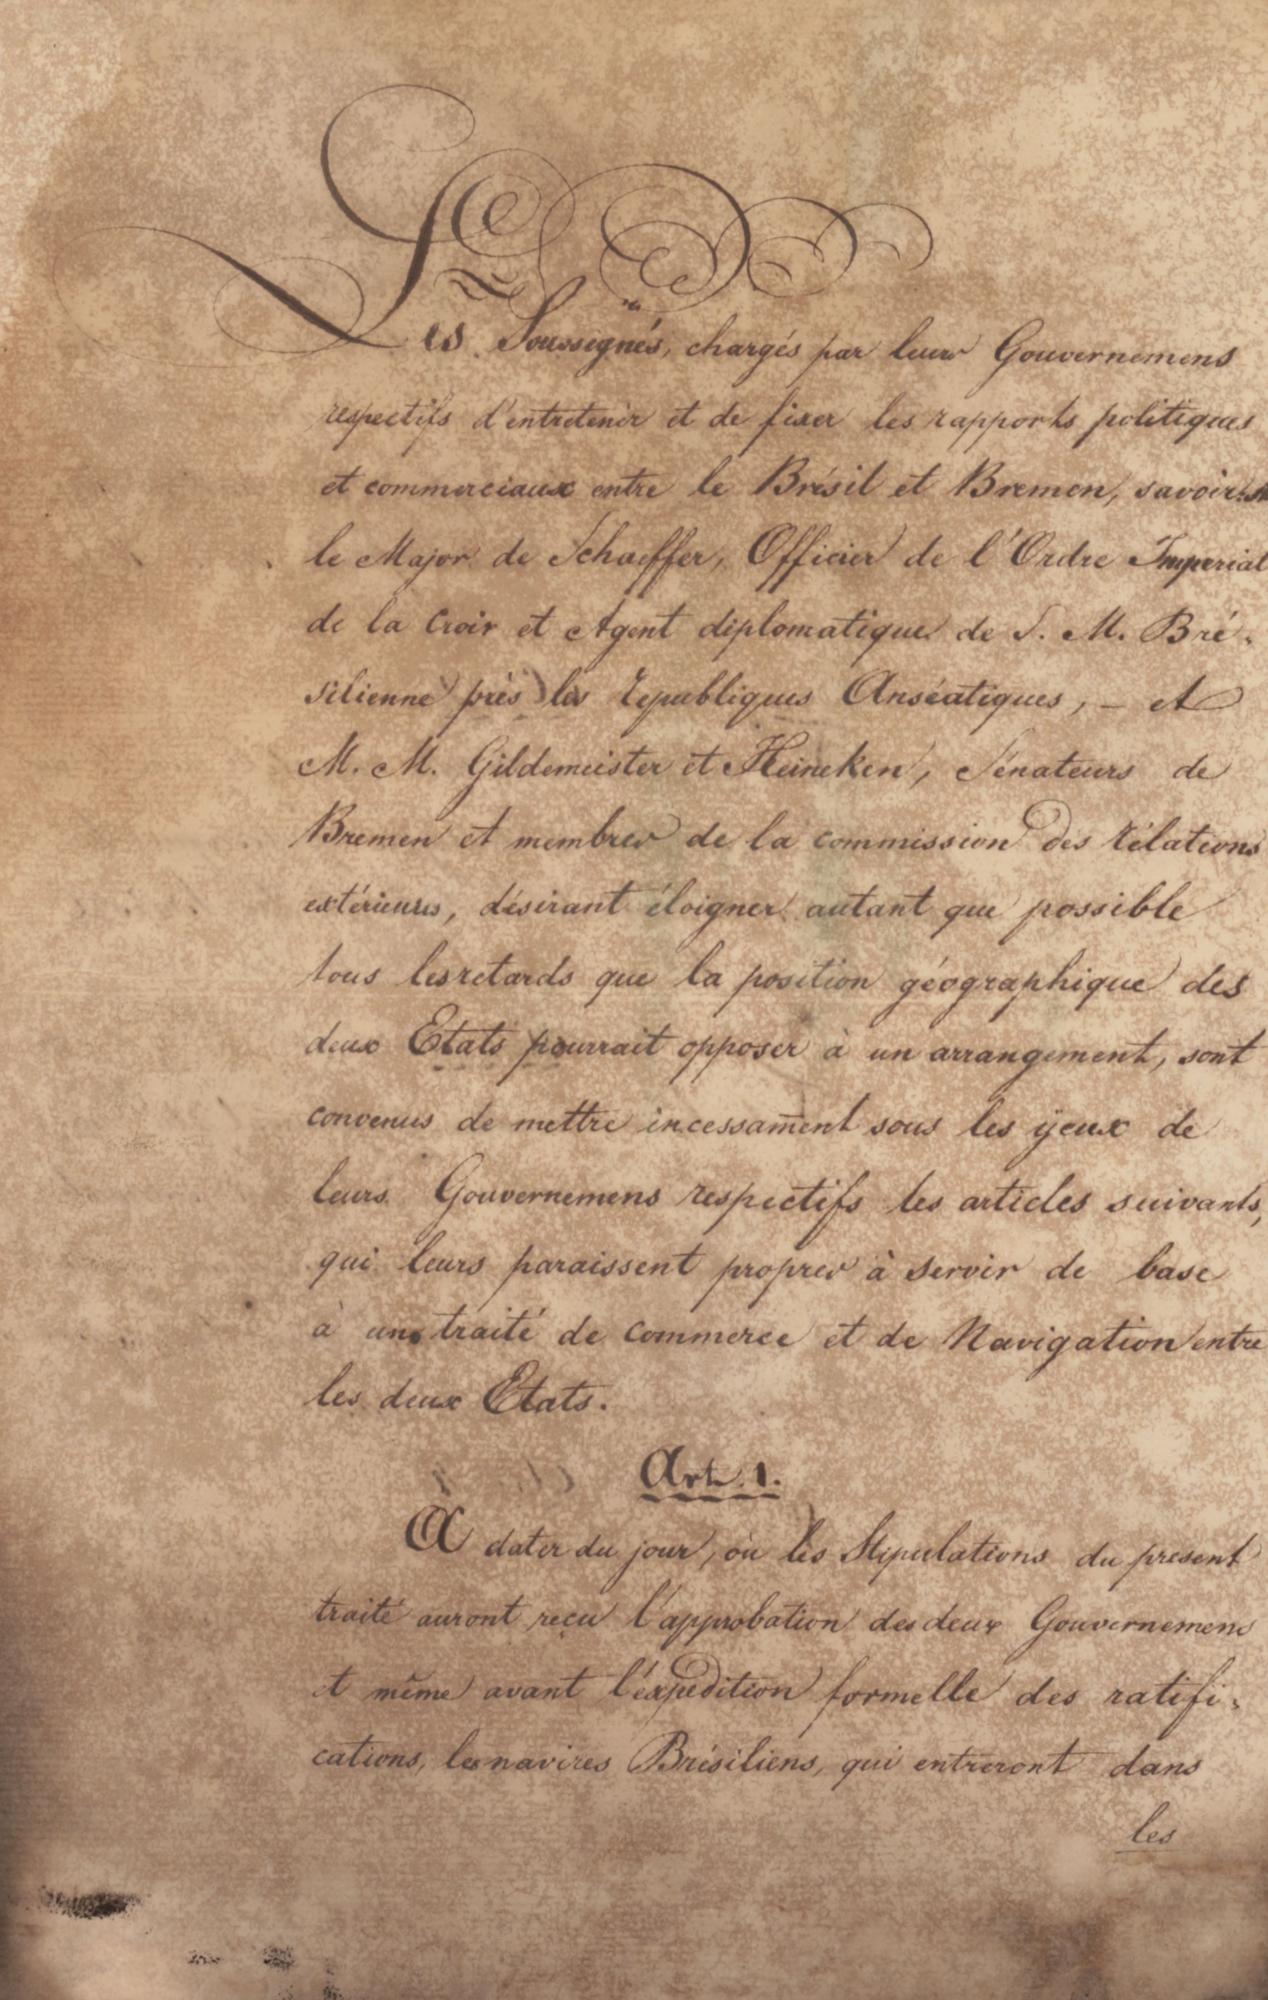 Les Soussignés, chargés par leurs Gouvernemens
respectifs d'entretenir et de fixer les rapports politiques
et commerciaux entre le Brésil et Bremen, savoir
le Major de Schaeffer, Officier de l'Ordre Imperial
de la Croix et Agent diplomatique de S. M. Bré-
silienne près les republiques Anséatiques, – et
M. M. Gildemeister et Heineken, Sénateurs de
Bremen et membres de la commission des rélations
extérieures, désirant éloigner autant que possible
tous les retards que la position géographique des
deux Etats pourrait opposer à un arrangement, sont
convenus de mettre incessam̄ent sous les yeux de
leurs Gouvernemens respectifs les articles suivants,
qui leurs paraissent propres à servir de base
à un traité de commerce et de Navigation entre
les deux Etats.
Art. 1.
À dater du jour, où les Stipulations du present
traité auront reçu l'approbation des deux Gouvernemens
et même avant l'éxpedition formelle des ratifi-
cations, les navires Brésiliens, qui entreront dans
les